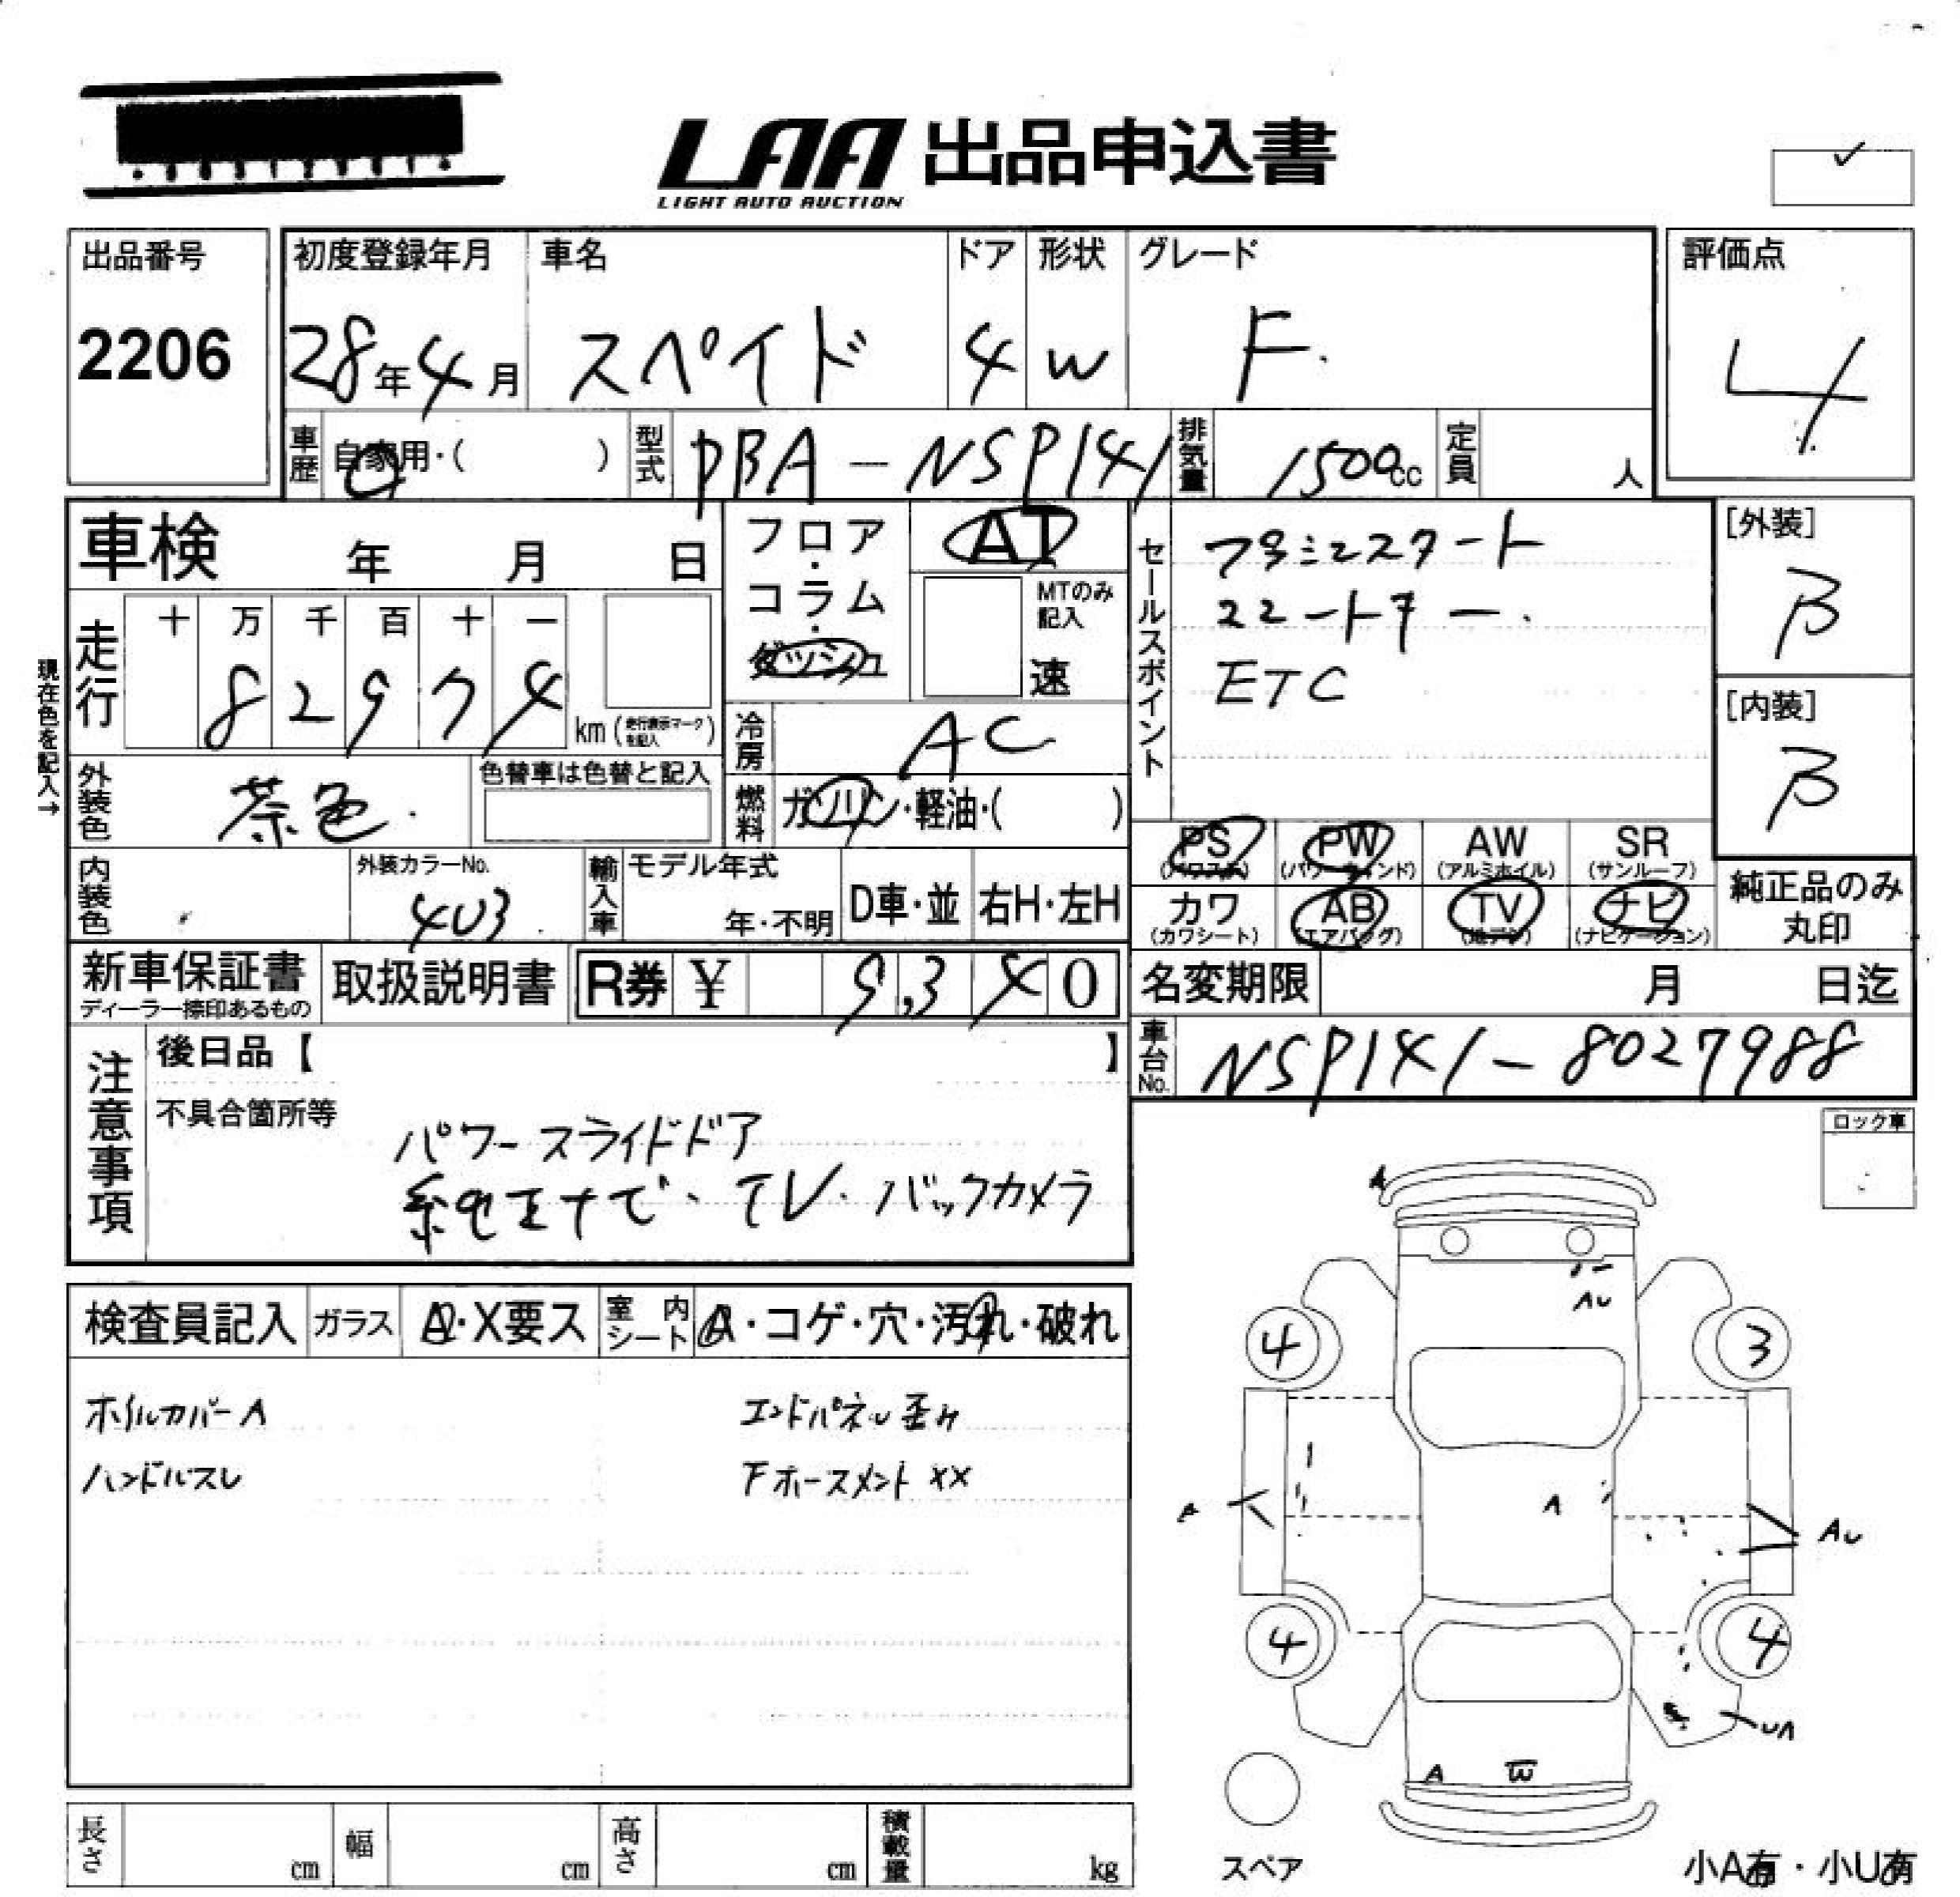 LAA 出品申込書
LIGHT AUTO AUCTION
出品番号
2206
初度登録年月
28年4月
車名
スペイド
ドア
4
形状
W
グレード
F.
評価点
4
車歴
自家用・( )
型式
DBA-NSP141
排気量
1500cc
定員
人
車検 年 月 日
フロア・コラム・ダッシュ
AT
MTのみ記入
速
セールスポイント
プッシュスタート
スマートキー.
ETC
[外装]
B
[内装]
B
現在色を記入→
走行
十 万 千 百 十 一
8 2 9 7 4
km (走行表示マークを記入)
冷房
AC
外装色
茶色.
色替車は色替と記入
燃料
ガソリン・軽油・( )
PS
(パワステ)
PW
(パワーウィンド)
AW
(アルミホイル)
SR
(サンルーフ)
内装色
外装カラーNo.
4U3
輸入車
モデル年式
年・不明
D車・並
右H・左H
カワ
(カワシート)
AB
(エアバッグ)
TV
(地デジ)
ナビ
(ナビゲーション)
純正品のみ
丸印
新車保証書
ディーラー捺印あるもの
取扱説明書
R券 ¥ 9,340
名変期限 月 日迄
車台No.
NSP141-8027988
注意事項
後日品【 】
不具合箇所等
パワースライドドア
純正ナビ・TV・バックカメラ
ロック車
検査員記入
ガラス
A・X要ス
室内シート
A・コゲ・穴・汚れ・破れ
ホイルカバーA
エンドパネル歪み
ハンドルスレ
Fホースメント XX
A
AU
4
3
A
A
AU
4
4
UA
A
W
スペア
小A有・小U有
長さ
cm
幅
cm
高さ
cm
積載量
kg